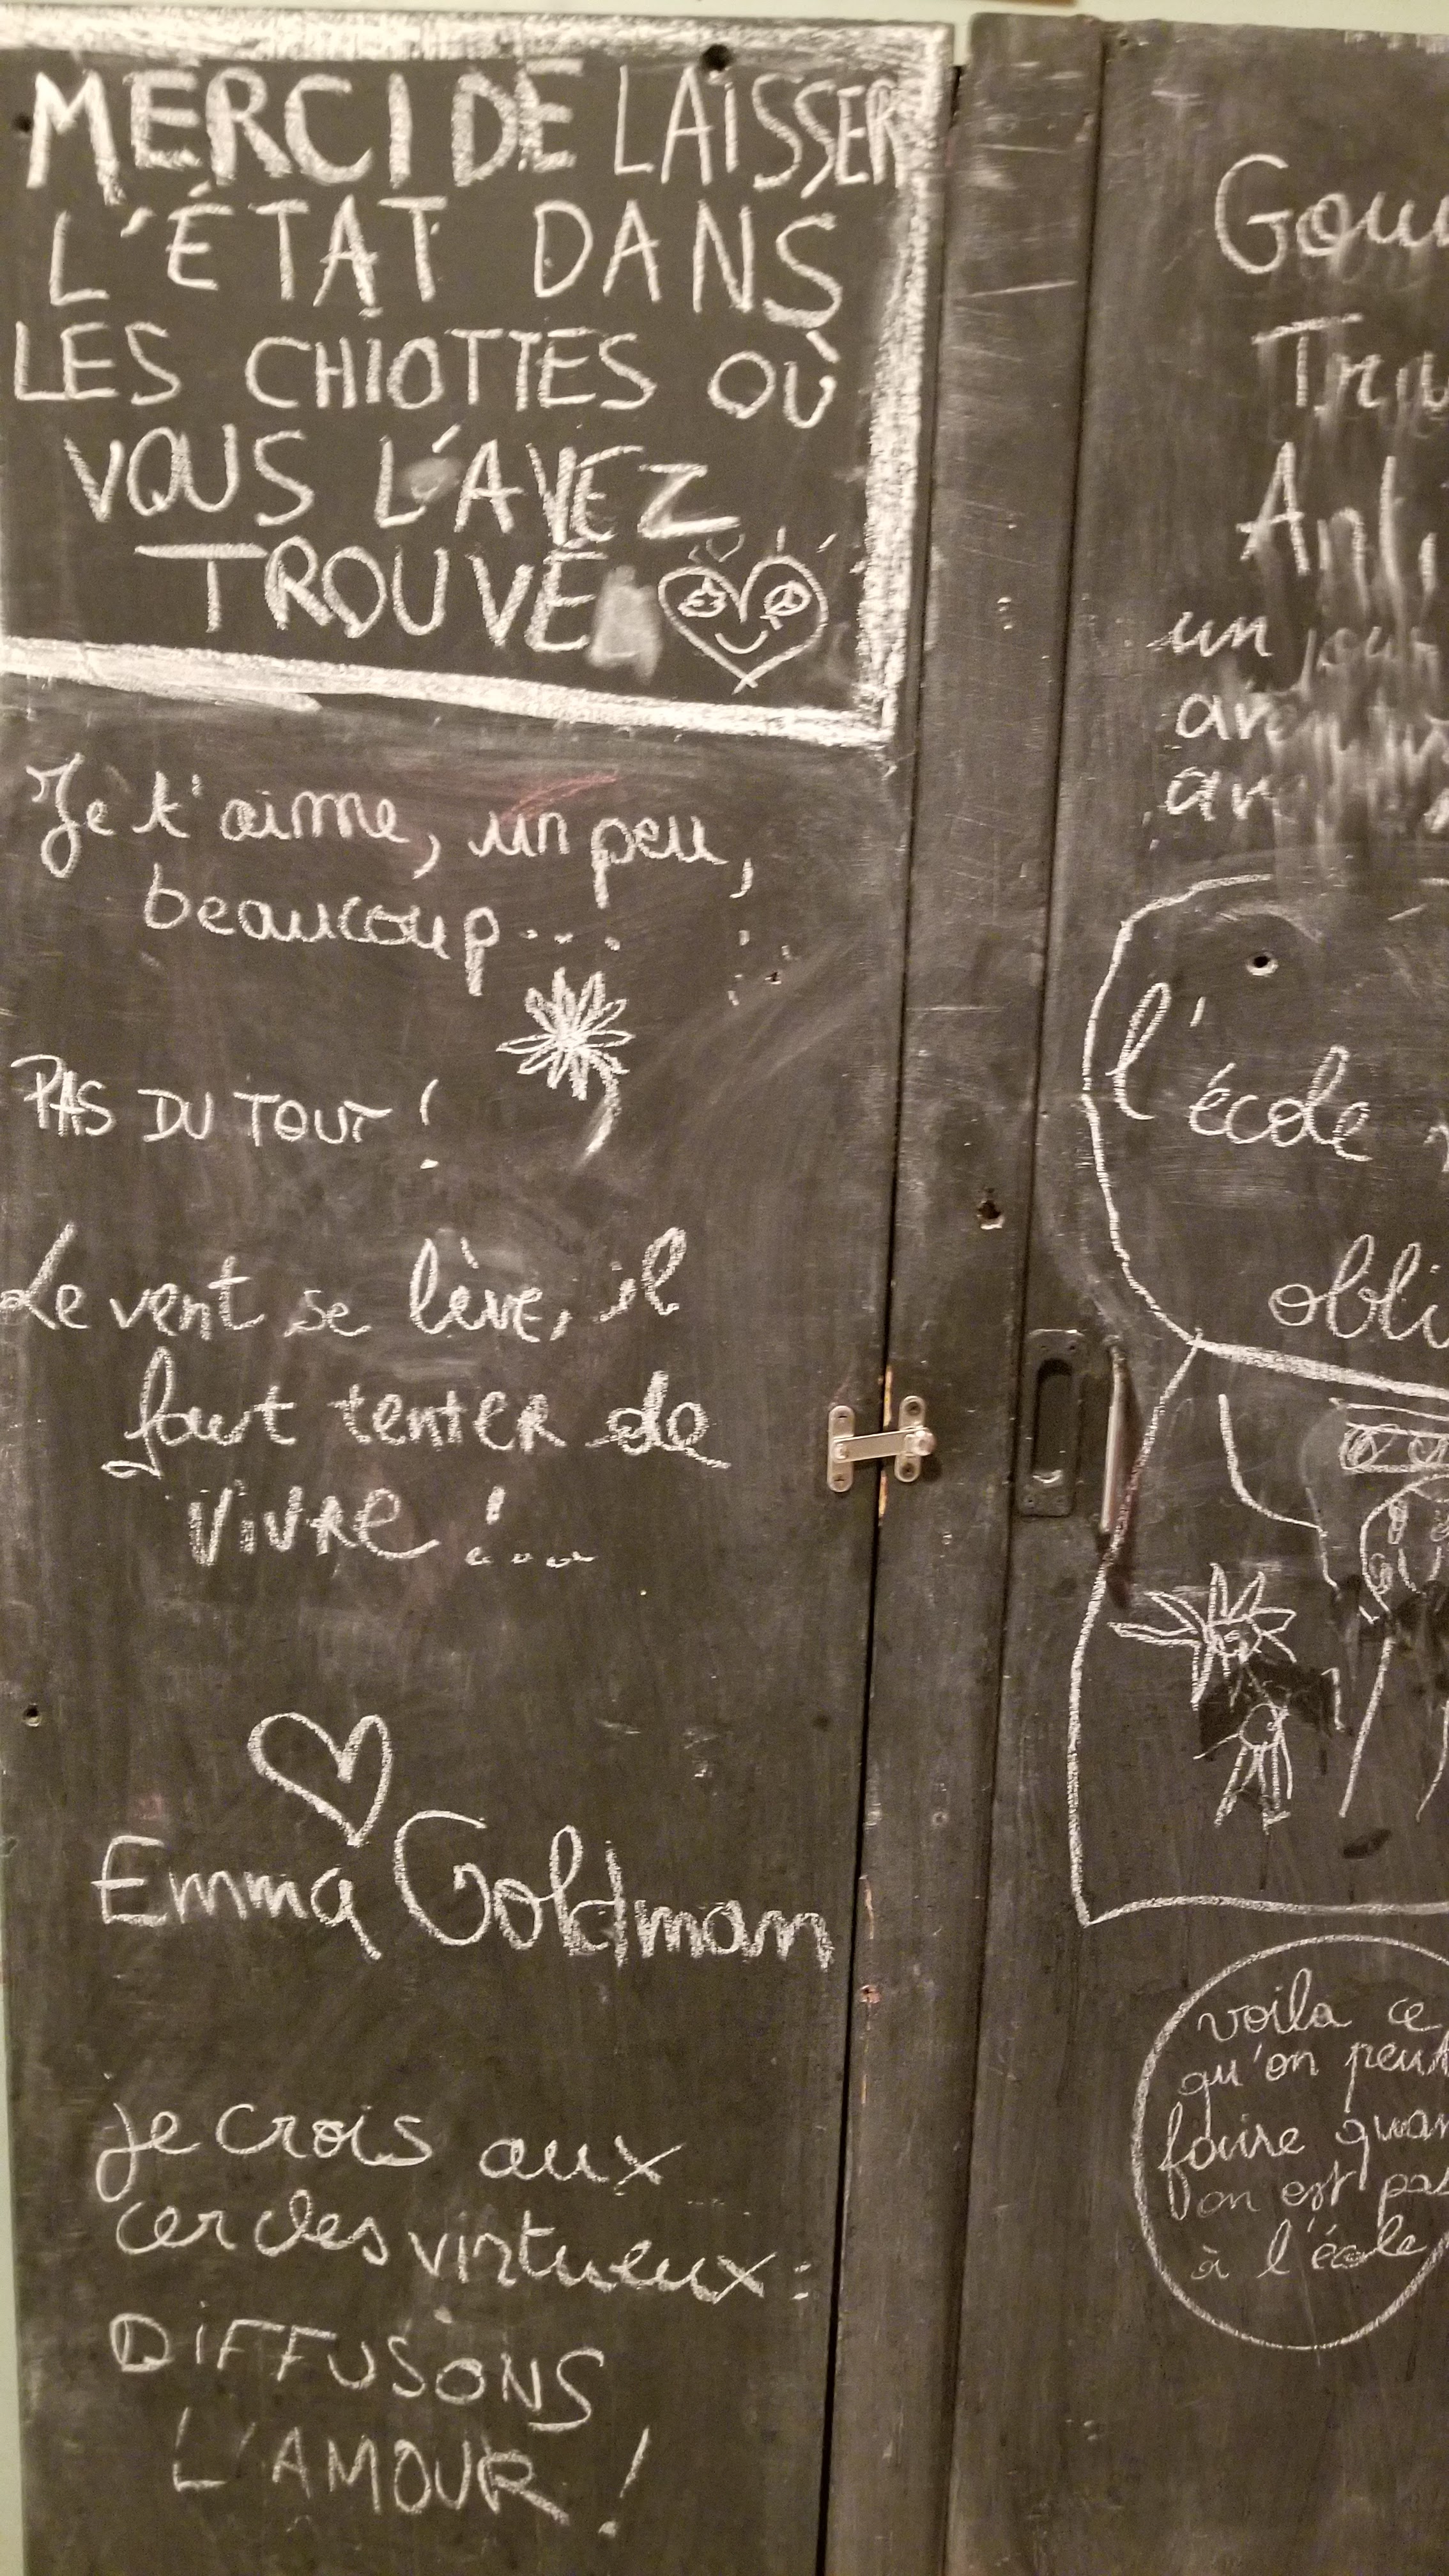 MERCI DE LAISSER
L'ÉTAT DANS
LES CHIOTTES OÙ
VOUS L'AVEZ
TROUVÉ
Je t'aime, un peu,
beaucoup...
PAS DU TOUT !
Le vent se lève, il
faut tenter de
vivre !...
Emma Goldman
je crois aux
cercles virtueux :
DIFFUSONS
L'AMOUR !
un jour
l'école
voila ce
qu'on peut
faire quan
on est pas
à l'école